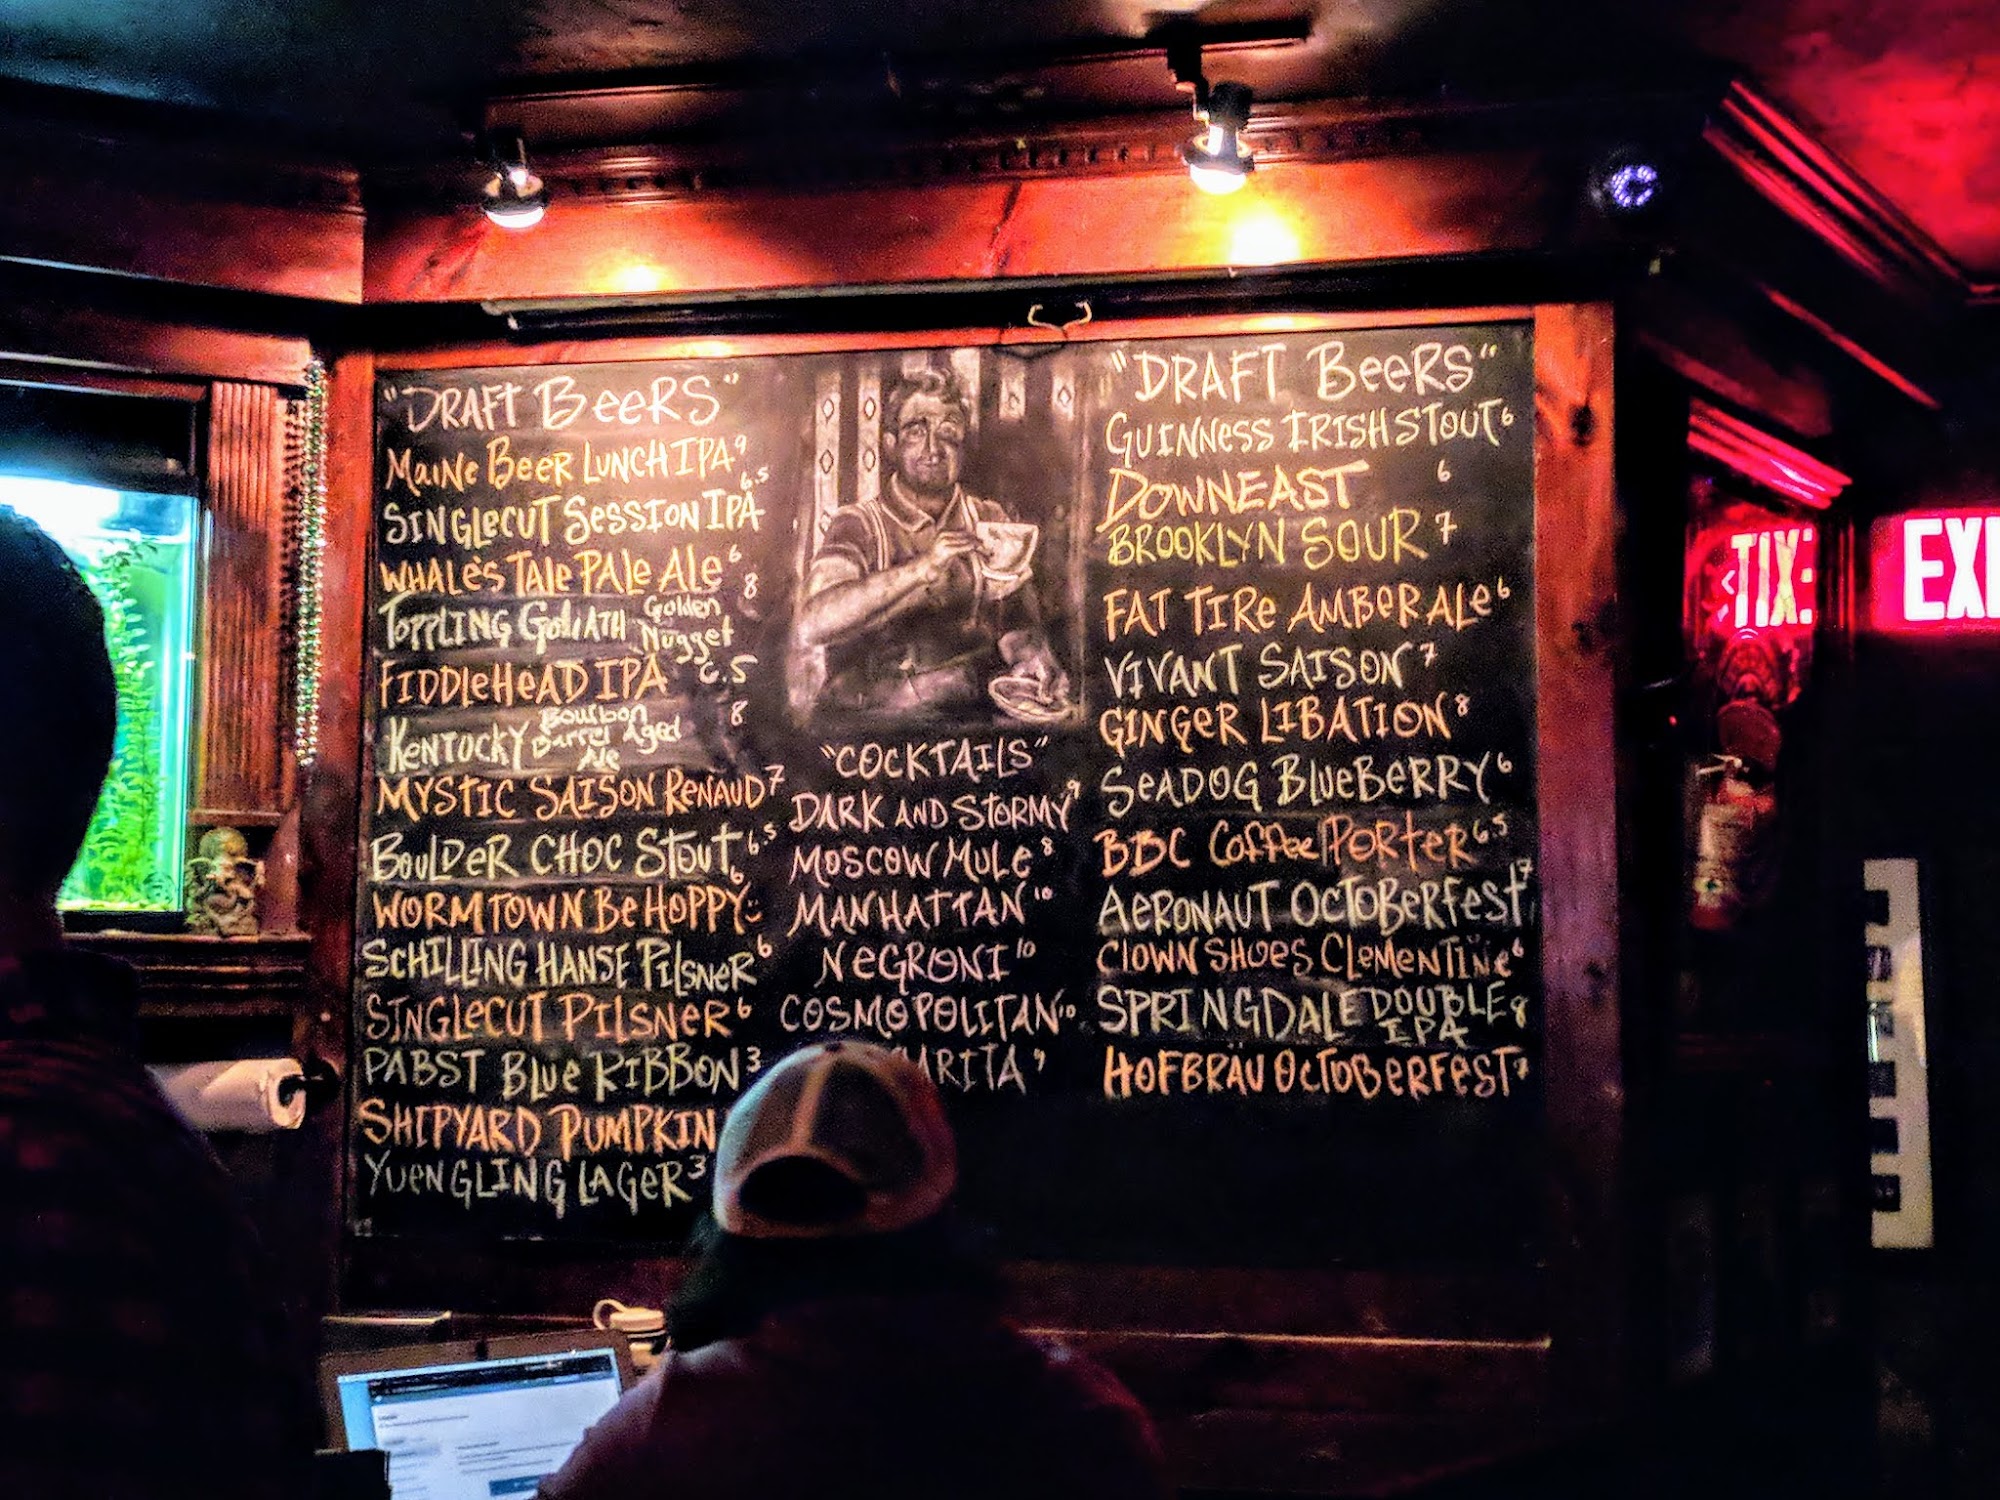 "DRAFT BEERS"
MAINE BEER LUNCH IPA 9
SINGLECUT SESSION IPA 6.5
WHALE'S TALE PALE ALE 6
TOPPLING GOLIATH Golden Nugget 8
FIDDLEHEAD IPA 6.5
KENTUCKY Bourbon Barrel Aged Ale 8
MYSTIC SAISON RENAUD 7
BOULDER CHOC STOUT 6.5
WORMTOWN BE HOPPY 6
SCHILLING HANSE PILSNER 6
SINGLECUT PILSNER 6
PABST BLUE RIBBON 3
SHIPYARD PUMPKIN
YUENGLING LAGER 3
"COCKTAILS"
DARK AND STORMY 9
MOSCOW MULE 8
MANHATTAN 10
NEGRONI 10
COSMOPOLITAN 10
ARITA 9
"DRAFT BEERS"
GUINNESS IRISH STOUT 6
DOWNEAST 6
BROOKLYN SOUR 7
FAT TIRE AMBER ALE 6
VIVANT SAISON 7
GINGER LIBATION 8
SEADOG BLUEBERRY 6
BBC COFFEE PORTER 6.5
AERONAUT OCTOBERFEST 7
CLOWN SHOES CLEMENTINE 6
SPRINGDALE DOUBLE IPA 8
HOFBRÄU OCTOBERFEST 7
EXI